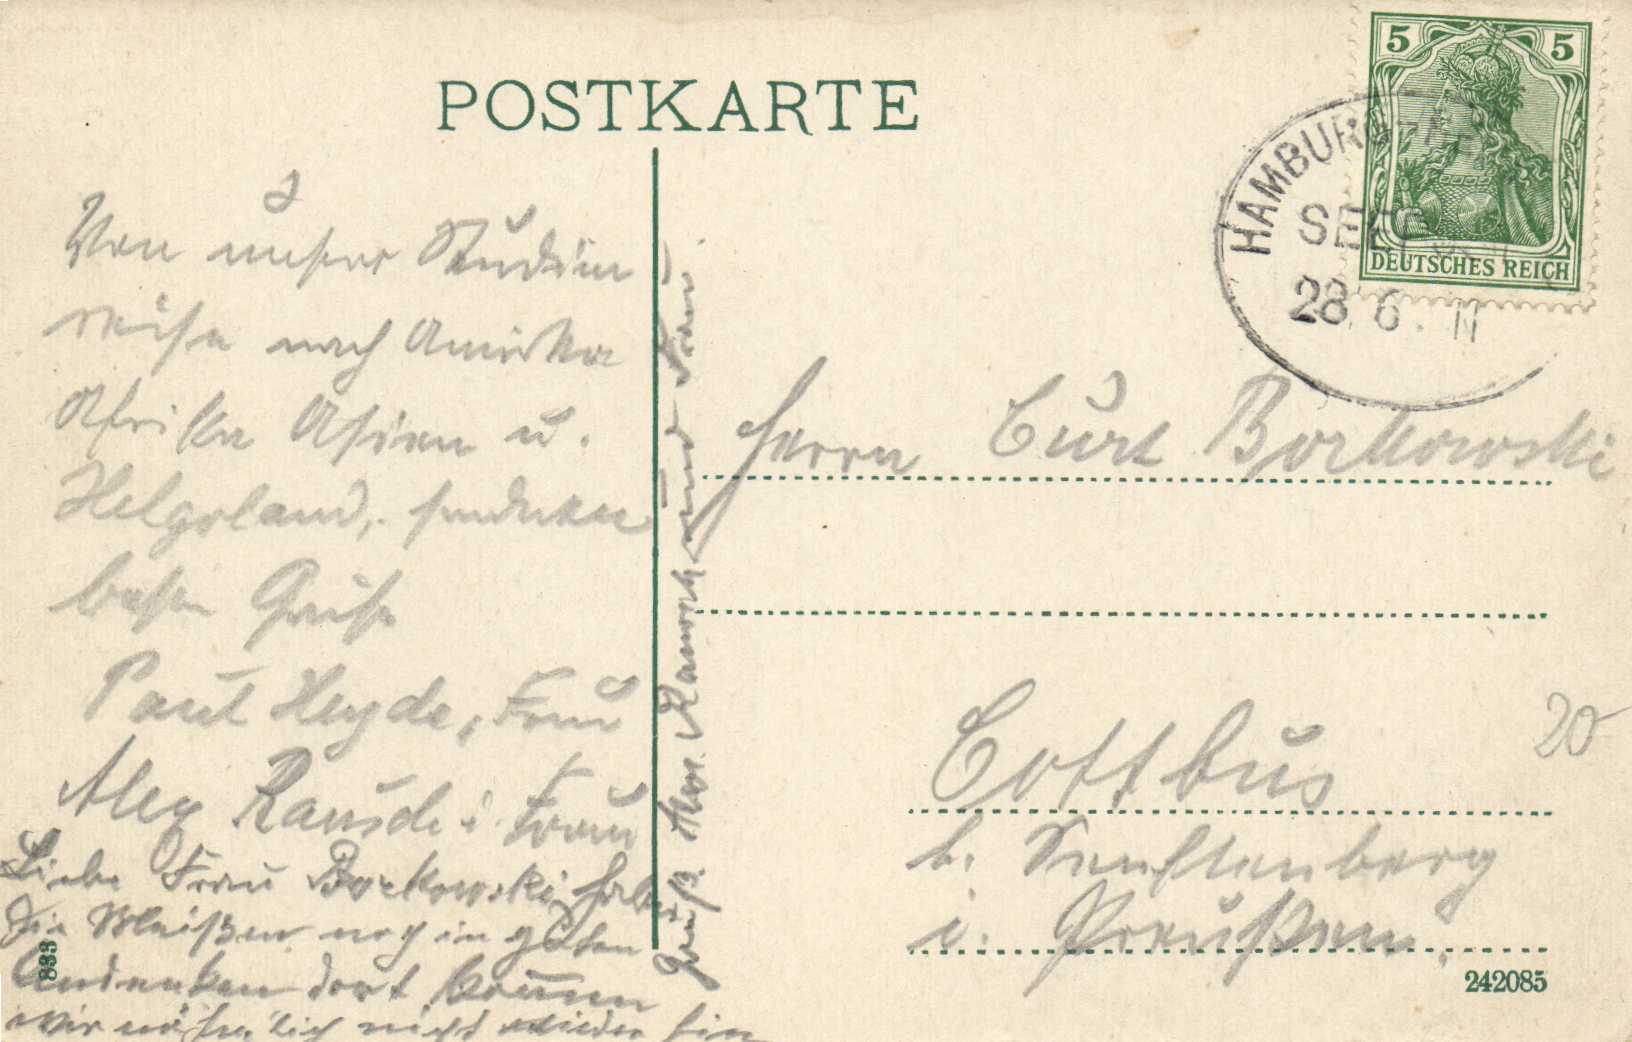 POSTKARTE
5 5
DEUTSCHES REICH
HAMBURG
SEEP
28. 6. 11
Von unser Studien
reise nach Amerika
Afrika Asien u.
Helgoland, senden
beste Grüße
Paul Heyde, Frau
Alex Rausch u. Frau
Liebe Frau Borkowski, haben
Sie Meißen noch in guten
Andenken dort kommen
wir nicht wieder hin
Gruß. Alex. Rausch und Frau.
Herrn Curt Borkowski
Cottbus
b. Senftenberg
i. Preußen.
20
833
242085